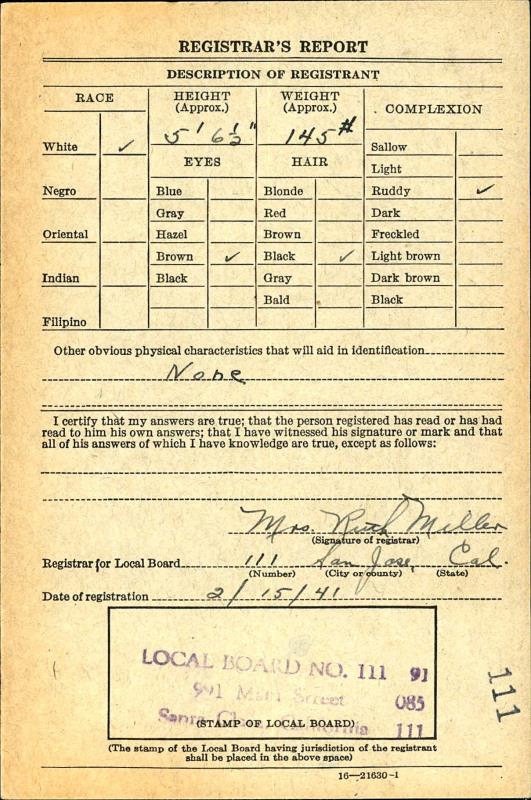 REGISTRAR'S REPORT
DESCRIPTION OF REGISTRANT
RACE
HEIGHT (Approx.)
WEIGHT (Approx.)
COMPLEXION
5' 6½"
145#
White ✓
Negro
Oriental
Indian
Filipino
EYES
Blue
Gray
Hazel
Brown ✓
Black
HAIR
Blonde
Red
Brown
Black ✓
Gray
Bald
Sallow
Light
Ruddy ✓
Dark
Freckled
Light brown
Dark brown
Black
Other obvious physical characteristics that will aid in identification
None
I certify that my answers are true; that the person registered has read or has had
read to him his own answers; that I have witnessed his signature or mark and that
all of his answers of which I have knowledge are true, except as follows:
Mrs. Ruth Miller
(Signature of registrar)
Registrar for Local Board 111 San Jose, Cal.
(Number) (City or county) (State)
Date of registration 2/15/41
LOCAL BOARD NO. 111 91
991 Street 085
Santa Clara California 111
(STAMP OF LOCAL BOARD)
(The stamp of the Local Board having jurisdiction of the registrant
shall be placed in the above space)
16—21630-1
111